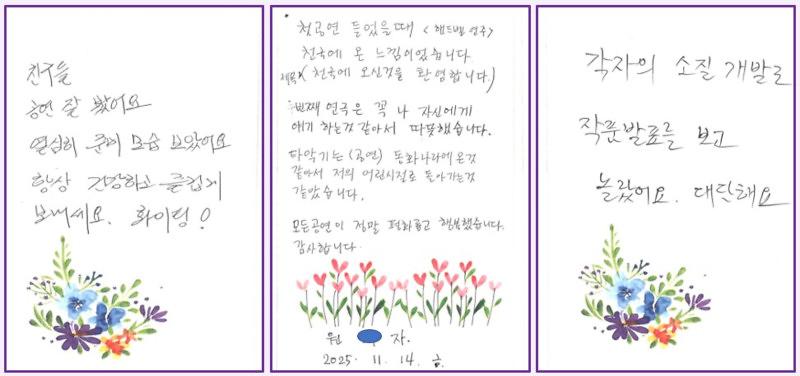 친구들
공연 잘 봤어요
열심히 준비 모습 보았어요
항상 건강하고 즐겁게
보내세요. 화이팅!
첫공연 들었을때 <핸드벨 연주>
천국에 온 느낌이었습니다
제목 (천국에 오신것을 환영합니다)
두번째 연극은 꼭 나 자신에게
얘기 하는것 같아서 따뜻했습니다.
타악기는 (공연) 동화나라에 온것
같아서 저의 어린시절로 돌아가는것
같았습니다.
모든공연이 정말 평화롭고 행복했습니다.
감사합니다.
원 자.
2025. 11. 14. 금.
각자의 소질 개발로
작품발표를 보고
놀랐어요. 대단해요